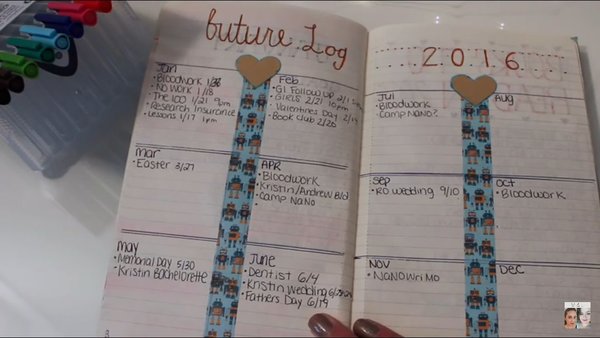 Future Log
Jan
• Bloodwork
• No Work 1/18
• The 100 1/21 9pm
• Research Insurance
• Lessons 1/17 1pm
Feb
• GI Follow up 2/1
• GIRLS 2/21 10pm
• Valentines Day 2/14
• Book club 2/26
Mar
• Easter 3/27
APR
• Bloodwork
• Kristin/Andrew
• Camp NaNo
•
May
• Memorial Day 5/30
• Kristin Bachelorette
June
• Dentist 6/4
• Kristin Wedding
• Fathers Day 6/19
2016
Jul
• Bloodwork
• Camp NaNo?
Aug
Sep
• RO wedding 9/10
Oct
• Bloodwork
Nov
• NaNoWriMo
Dec